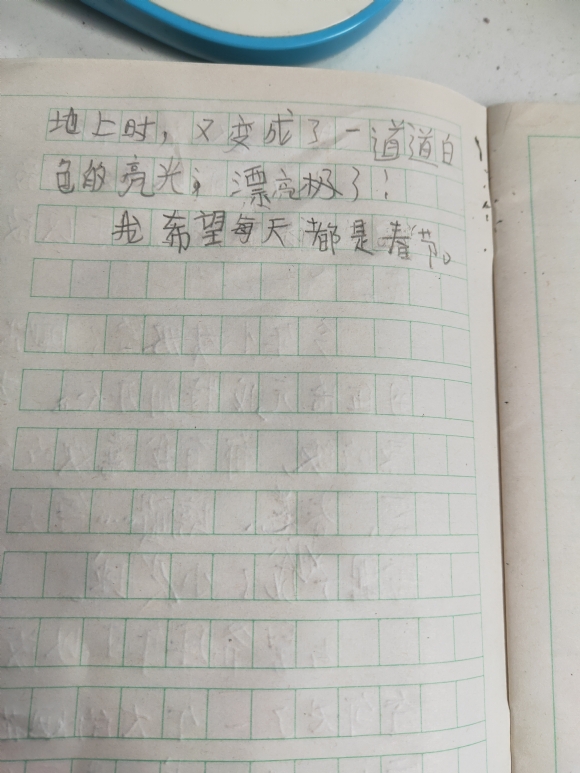 地上时，又变成了一道道白
色的亮光，漂亮极了！
我希望每天都是春节。